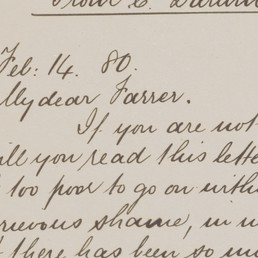 From C. Darwin
Feb: 14. 80.
My dear Farrer.
If you are not
will you read this lette
too poor to go on withi
rievous shame, in m
there has been so mu